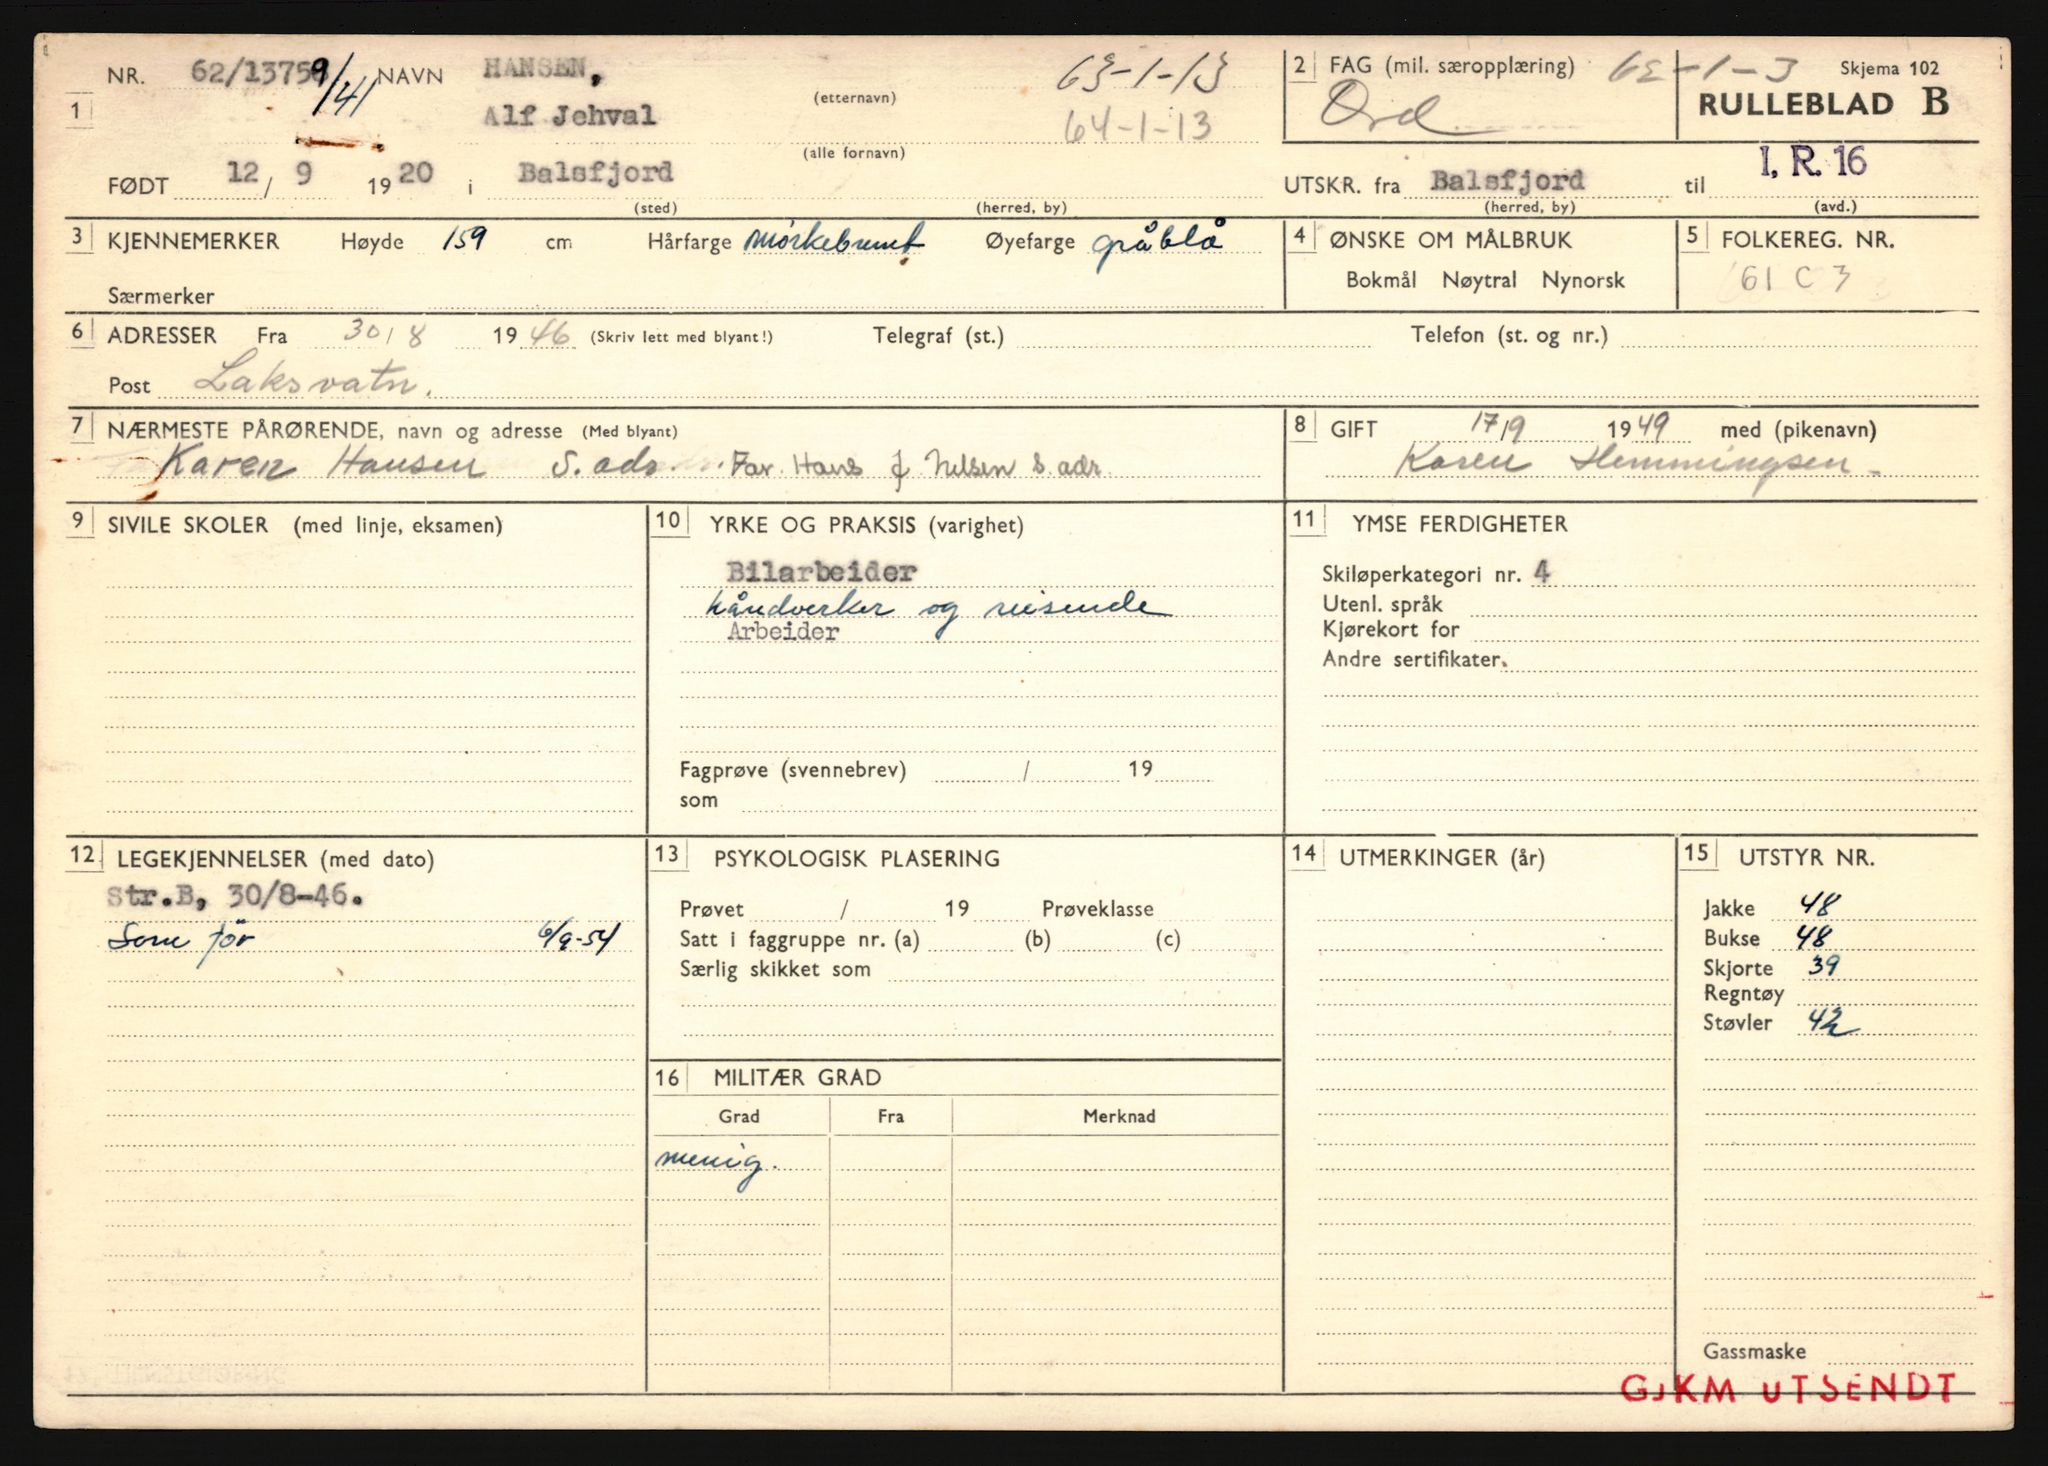 NR. 62/13759/41 NAVN HANSEN, (etternavn) 63-1-13
1 Alf Jehval (alle fornavn) 64-1-13
FØDT 12/9 1920 i Balsfjord (sted) (herred, by)
2 FAG (mil. særopplæring) Ord 62-1-3 Skjema 102
RULLEBLAD B
UTSKR. fra Balsfjord (herred, by) til I. R. 16 (avd.)
3 KJENNEMERKER Høyde 159 cm Hårfarge mörkebrunt Øyefarge gråblå
Særmerker
4 ØNSKE OM MÅLBRUK
Bokmål Nøytral Nynorsk
5 FOLKEREG. NR.
61 C 3
6 ADRESSER Fra 30/8 1946 (Skriv lett med blyant!) Telegraf (st.) Telefon (st. og nr.)
Post Laksvatn.
7 NÆRMESTE PÅRØRENDE, navn og adresse (Med blyant)
Karen Hansen S. adr. Far. Hans J Nilsen S. adr.
8 GIFT 17/9 1949 med (pikenavn)
Karen Hemmingsen
9 SIVILE SKOLER (med linje, eksamen)
10 YRKE OG PRAKSIS (varighet)
Bilarbeider
håndverker og reisende
Arbeider
Fagprøve (svennebrev) / 19
som
11 YMSE FERDIGHETER
Skiløperkategori nr. 4
Utenl. språk
Kjørekort for
Andre sertifikater.
12 LEGEKJENNELSER (med dato)
Str.B, 30/8-46.
Som för 6/9-54
13 PSYKOLOGISK PLASERING
Prøvet / 19 Prøveklasse
Satt i faggruppe nr. (a) (b) (c)
Særlig skikket som
14 UTMERKINGER (år)
15 UTSTYR NR.
Jakke 48
Bukse 48
Skjorte 39
Regntøy
Støvler 42
Gassmaske
16 MILITÆR GRAD
Grad Fra Merknad
menig.
GJKM UTSENDT